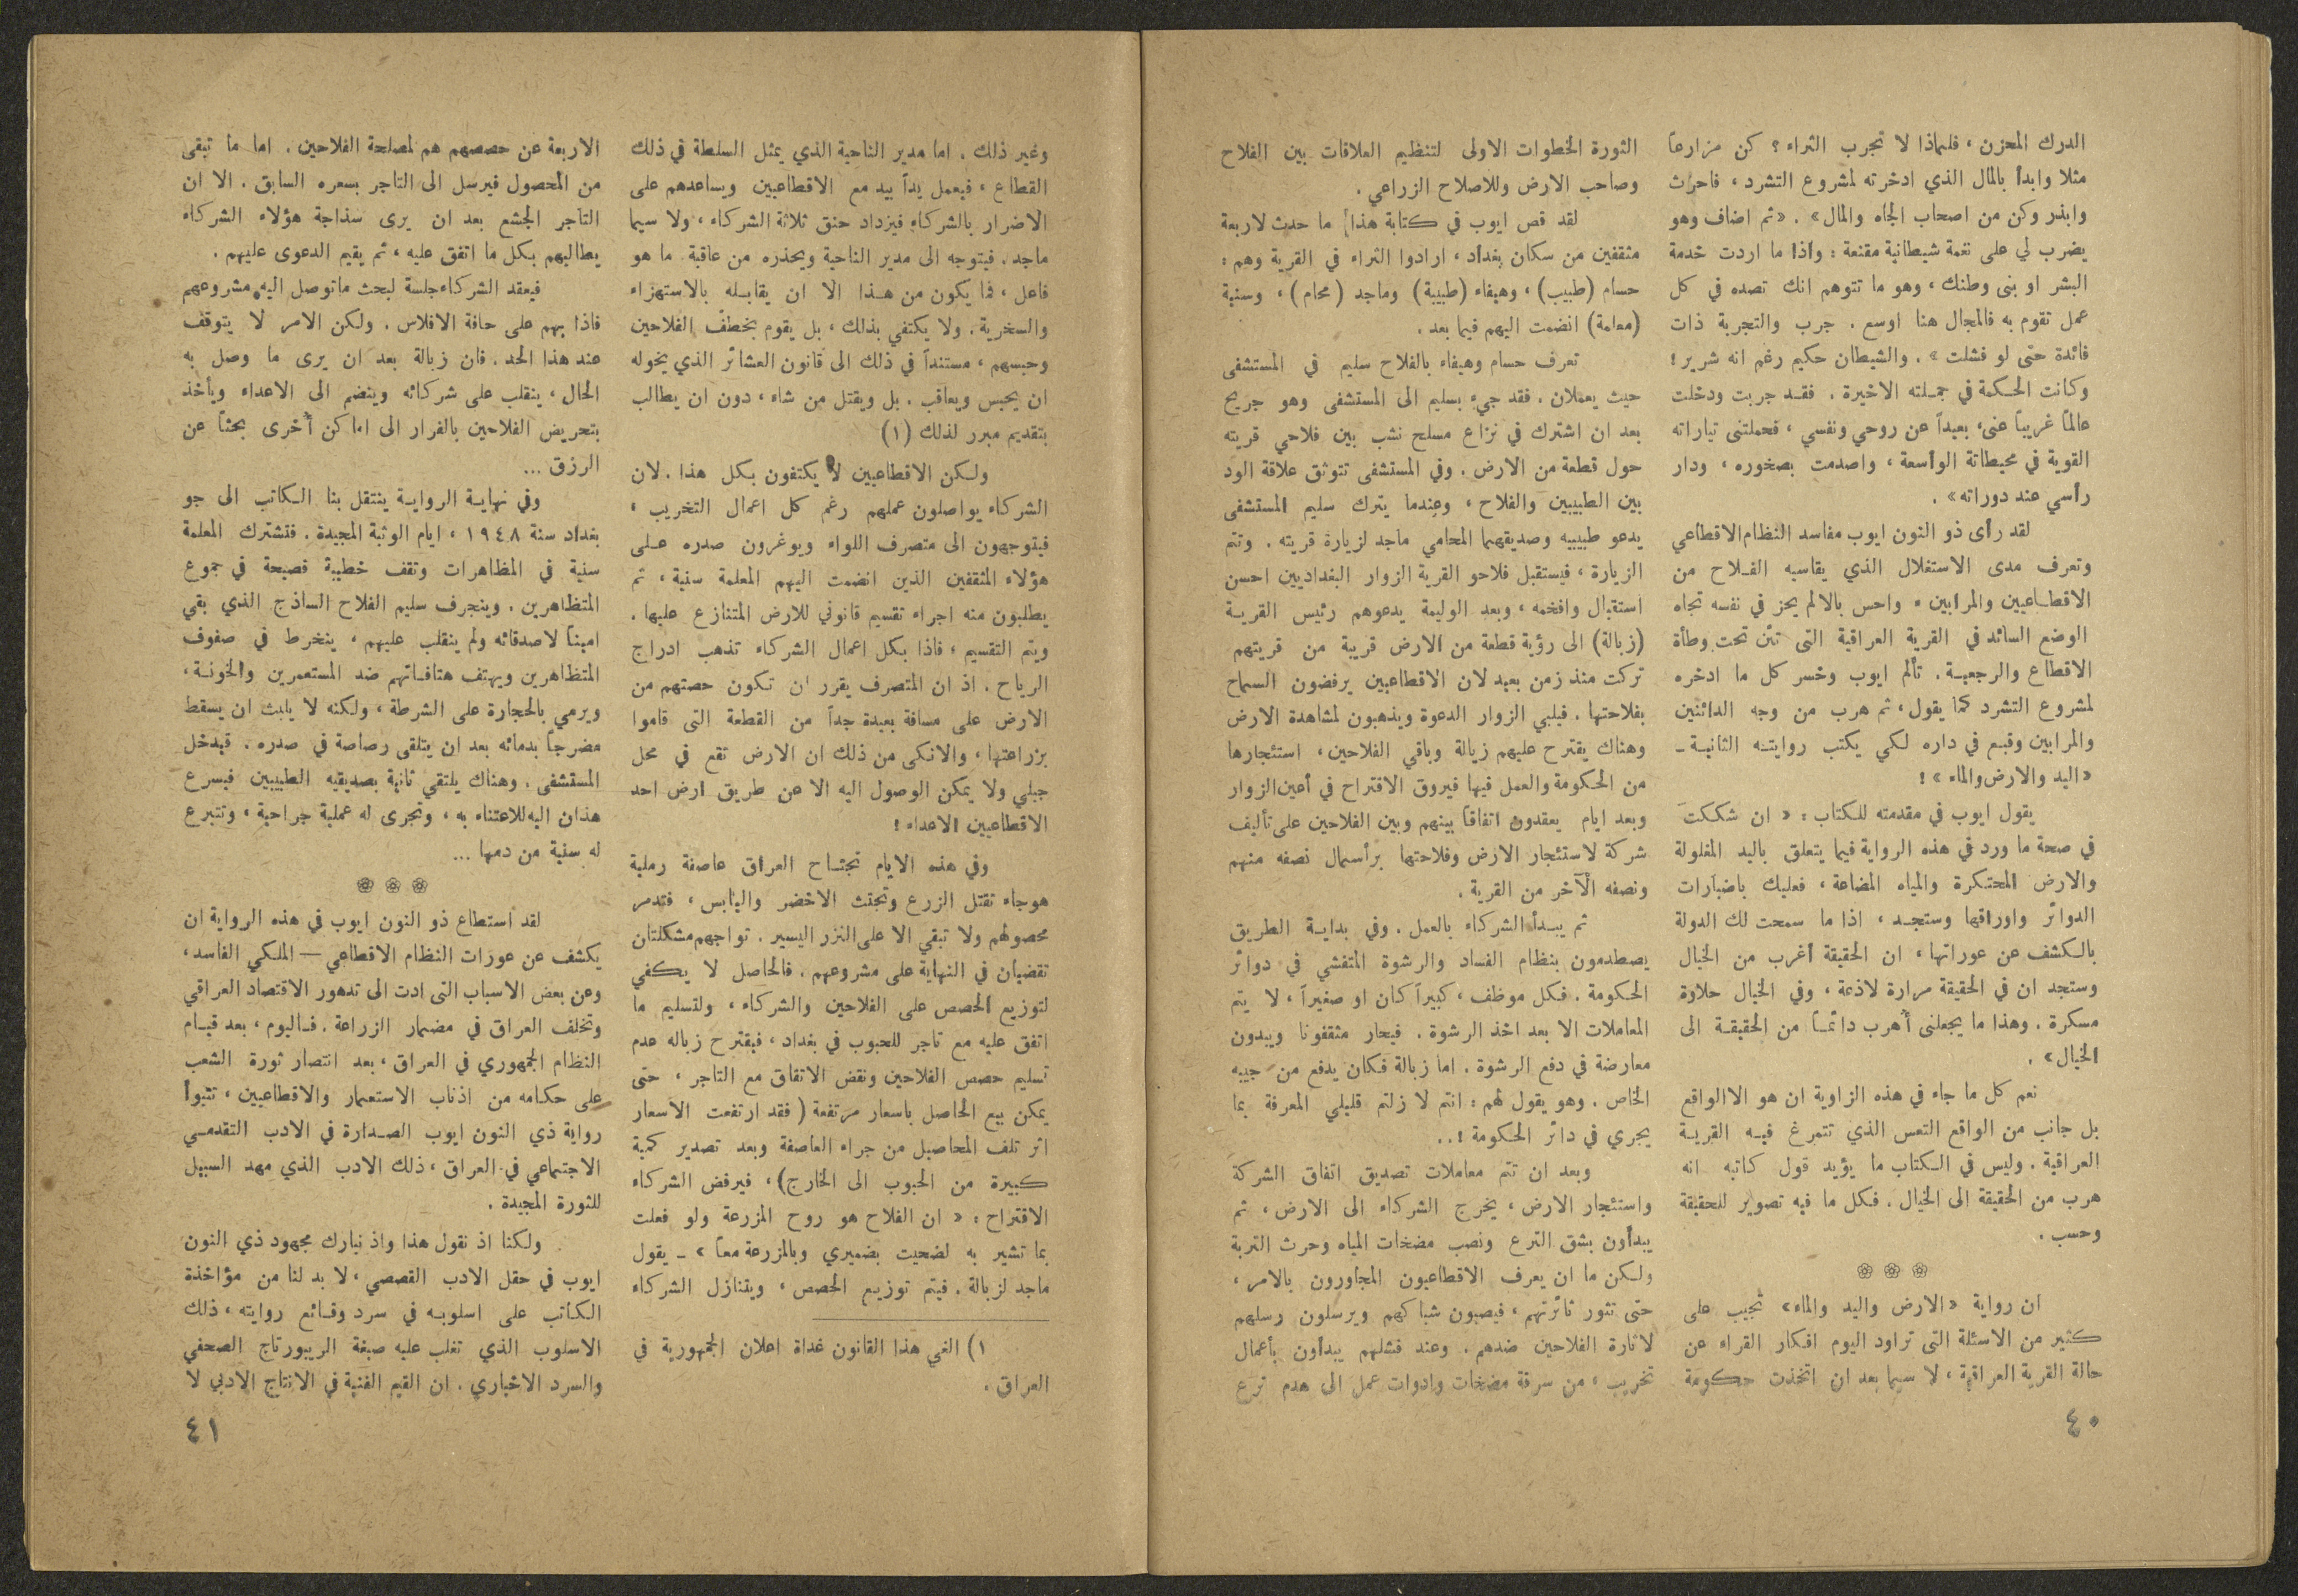 الدرك المحزن ، فلماذا لا تجرب الثراء ؟ كن مزارعاً
مثلا وابدأ بالمال الذي ادخرته لمشروع التشرد ، فاحرث
وابذر وكن من اصحاب الجاه والمال» . «ثم اضاف وهو
يضرب لي على نغمة شيطانية مقنعة : واذا ما اردت خدمة
البشر او بنى وطنك ، وهو ما تتوهم انك تصده في كل
عمل تقوم به فالمجال هنا اوسع . جرب والتجربة ذات
فائدة حتى لو فشلت » . والشيطان حكيم رغم انه شرير !
وكانت الحكمة في جملته الاخيرة . فقد جربت ودخلت
عالماً غريباً عنى، بعيداً عن روحي ونفسي ، فحملتنى تياراته
القوية في محيطاتة الواسعة ، واصدمت بصخوره ، ودار
رأسي عند دوراته» .
لقد رأى ذو النون ايوب مفاسد النظام الاقطاعي
وتعرف مدى الاستغلال الذي يقاسيه الفلاح من
الاقطاعيين والمرابين ، واحس بالالم يحز في نفسه تجاه
الوضع السائد في القرية العراقية التى تئن تحت وطأة
الاقطاع والرجعية . تألم ايوب وخسر كل ما ادخره
لمشروع التشرد كما يقول ، ثم هرب من وجه الدائنين
والمرابين وقبع في داره لكي يكتب روايته الثانية ـ
«اليد والارض والماء » !
يقول ايوب في مقدمته للكتاب : « ان شككتَ
في صحة ما ورد في هذه الرواية فيما يتعلق باليد المغلولة
والارض المحتكرة والمياه المضاعة ، فعليك باضبارات
الدوائر واوراقها وستجد ، اذا ما سمحت لك الدولة
بالكشف عن عوراتها ، ان الحقيقة أغرب من الخيال
وستجد ان في الحقيقة مرارة لاذعة ، وفي الخيال حلاوة
مسكرة . وهذا ما يجعلنى أهرب دائماً من الحقيقة الى
الخيال» .
نعم كل ما جاء في هذه الزاوية ان هو الا الواقع
بل جانب من الواقع التعس الذي تتمرغ فيه القرية
العراقية . وليس في الكتاب ما يؤيد قول كاتبه انه
هرب من الحقيقة الى الخيال . فكل ما فيه تصوير للحقيقة
وحسب .
ان رواية «الارض واليد والماء» تجيب على
كثير من الاسئلة التى تراود اليوم افكار القراء عن
حالة القرية العراقية ، لا سيما بعد ان اتخذت حكومة
٤٠
الثورة الخطوات الاولى لتنظيم العلاقات بين الفلاح
وصاحب الارض وللاصلاح الزراعي .
لقد قص ايوب في كتابة هذا ما حدث لاربعة
مثقفين من سكان بغداد ، ارادوا الثراء في القرية وهم :
حسام (طبيب) ، وهيفاء (طبيبة) وماجد (محام) ، وسنية
(معلمة) انضمت اليهم فيما بعد .
تعرف حسام وهيفاء بالفلاح سليم في المستشفى
حيث يعملان . فقد جيء بسليم الى المستشفى وهو جريح
بعد ان اشترك في نزاع مسلح نشب بين فلاحي قريته
حول قطعة من الارض . وفي المستشفى تتوثق علاقة الود
بين الطبيبين والفلاح ، وعندما يترك سليم المستشفى
يدعو طبيبيه وصديقهما المحامي ماجد لزيارة قريته . وتتم
الزيارة ، فيستقبل فلاحو القرية الزوار البغداديين احسن
استقبال وافخمه ، وبعد الوليمة يدعوهم رئيس القرية
(زبالة) الى رؤية قطعة من الارض قريبة من قريتهم
تركت منذ زمن بعيد لان الاقطاعيين يرفضون السماح
بفلاحتها . فيلبي الزوار الدعوة ويذهبون لمشاهدة الارض
وهناك يقترح عليهم زبالة وباقي الفلاحين ، استئجارها
من الحكومة والعمل فيها فيروق الاقتراح في أعين الزوار
وبعد ايام يعقدون اتفاقاً بينهم وبين الفلاحين على تأليف
شركة لاستئجار الارض وفلاحتها برأسمال نصفه منهم
ونصفه الآخر من القرية .
ثم يبدأ الشركاء بالعمل . وفي بداية الطريق
يصطدمون بنظام الفساد والرشوة المتفشي في دوائر
الحكومة . فكل موظف ، كبيراً كان او صغيراً ، لا يتم
المعاملات الا بعد اخذ الرشوة . فيحار مثقفونا ويبدون
معارضة في دفع الرشوة . اما زبالة فكان يدفع من جيبه
الخاص . وهو يقول لهم : انتم لا زلتم قليلي المعرفة بما
يجري في دائر الحكومة ! . .
وبعد ان تتم معاملات تصديق اتفاق الشركة
واستئجار الارض ، يخرج الشركاء الى الارض ، ثم
يبدأون بشق الترع ونصب مضخات المياه وحرث التربة
ولكن ما ان يعرف الاقطاعيون المجاورون بالامر ،
حتى تثور ثائرتهم ، فيصبون شباكهم ويرسلون رسلهم
لاثارة الفلاحين ضدهم . وعند فشلهم يبدأون بأعمال
تخريب ، من سرقة مضخات وادوات عمل الى هدم ترع
وغير ذلك . اما مدير الناحية الذي يمثل السلطة في ذلك
القطاع ، فيعمل يداً بيد مع الاقطاعيين ويساعدهم على
الاضرار بالشركاء فيزداد حنق ثلاثة الشركاء ، ولا سيما
ماجد . فيتوجه الى مدير الناحية ويحذره من عاقبة ما هو
فاعل ، فما يكون من هذا الا ان يقابله بالاستهزاء
والسخرية . ولا يكتفي بذلك ، بل يقوم بخطف الفلاحين
وحبسهم ، مستنداً في ذلك الى قانون العشائر الذي يخوله
ان يحبس ويعاقب . بل ويقتل من شاء ، دون ان يطالب
بتقديم مبرر لذلك (١)
ولكن الاقطاعيين لا يكتفون بكل هذا . لان
الشركاء يواصلون عملهم رغم كل اعمال التخريب ،
فيتوجهون الى متصرف اللواء ويوغرون صدره على
هؤلاء المثقفين الذين انضمت اليهم المعلمة سنية ، ثم
يطلبون منه اجراء تقسيم قانوني للارض المتنازع عليها .
ويتم التقسيم ، فاذا بكل اعمال الشركاء تذهب ادراج
الرياح . اذ ان المتصرف يقرر ان تكون حصتهم من
الارض على مسافة بعيدة جداً من القطعة التى قاموا
بزراعتها ، والانكى من ذلك ان الارض تقع في محل
جبلي ولا يمكن الوصول اليه الا عن طريق ارض احد
الاقطاعيين الاعداء !
وفي هذه الايام تجتاح العراق عاصفة رملية
هوجاء تقتل الزرع وتجتث الاخضر واليابس ، فتدمر
محصولهم ولا تبقي الا على النزر اليسير . تواجههم مشكلتان
تقضيان في النهاية على مشروعهم . فالحاصل لا يكفي
لتوزيع الحصص على الفلاحين والشركاء ، ولتسليم ما
اتفق عليه مع تاجر للحبوب في بغداد ، فيقترح زباله عدم
تسليم حصص الفلاحين ونقض الاتفاق مع التاجر ، حتى
يمكن بيع الحاصل باسعار مرتفعة ( فقد ارتفعت الاسعار
اثر تلف المحاصيل من جراء العاصفة وبعد تصدير كمية
كبيرة من الحبوب الى الخارج) ، فيرفض الشركاء
الاقتراح : « ان الفلاح هو روح المزرعة ولو فعلت
بما تشير به لضحيت بضميري وبالمزرعة معاً » ـ يقول
ماجد لزبالة . فيتم توزيع الحصص ، ويتنازل الشركاء
١) الغي هذا القانون غداة اعلان الجمهورية في
العراق .
الاربعة عن حصصهم هم لمصلحة الفلاحين . اما ما تبقى
من المحصول فيرسل الى التاجر بسعره السابق . الا ان
التاجر الجشع بعد ان يرى سذاجة هؤلاء الشركاء
يطالبهم بكل ما اتفق عليه ، ثم يقيم الدعوى عليهم .
فيعقد الشركاء جلسة لبحث ماتوصل اليه مشروعهم
فاذا بهم على حافة الافلاس . ولكن الامر لا يتوقف
عند هذا الحد . فان زبالة بعد ان يرى ما وصل به
الحال ، ينقلب على شركائه وينضم الى الاعداء ويأخذ
بتحريض الفلاحين بالفرار الى اماكن أخرى بحثاً عن
الرزق ...
وفي نهاية الرواية ينتقل بنا الكاتب الى جو
بغداد سنة ١٩٤٨ ، ايام الوثبة المجيدة . فتشترك المعلمة
سنية في المظاهرات وتقف خطيبة فصيحة في جموع
المتظاهرين . وينجرف سليم الفلاح الساذج الذي بقي
اميناً لاصدقائه ولم ينقلب عليهم ، ينخرط في صفوف
المتظاهرين ويهتف هتافاتهم ضد المستعمرين والخونة ،
ويرمي بالحجارة على الشرطة ، ولكنه لا يلبث ان يسقط
مضرجاً بدمائه بعد ان يتلقى رصاصة في صدره . فيدخل
المسقشفى . وهناك يلتقي ثانية بصديقيه الطبيبين فيسرع
هذان اليه للاعتناء به ، وتجرى له عملية جراحية ، وتتبرع
له سنية من دمها ...
لقد استطاع ذو النون ايوب في هذه الرواية ان
يكشف عن عورات النظام الاقطاعي — الملكي الفاسد ،
وعن بعض الاسباب التى ادت الى تدهور الاقتصاد العراقي
وتخلف العراق في مضمار الزراعة . فاليوم ، بعد قيام
النظام الجمهوري في العراق ، بعد انتصار ثورة الشعب
على حكامه من اذناب الاستعمار والاقطاعيين ، تتبوأ
رواية ذي النون ايوب الصدارة في الادب التقدمي
الاجتماعي في العراق ، ذلك الادب الذي مهد السبيل
للثورة المجيدة .
ولكنا اذ نقول هذا واذ نبارك مجهود ذي النون
ايوب في حقل الادب القصصي ، لا بد لنا من مؤاخذة
الكاتب على اسلوبه في سرد وقائع روايته ، ذلك
الاسلوب الذي تغلب عليه صبغة الريبورتاج الصحفي
والسرد الاخباري . ان القيم الفنية في الانتاج الادبي لا
٤١